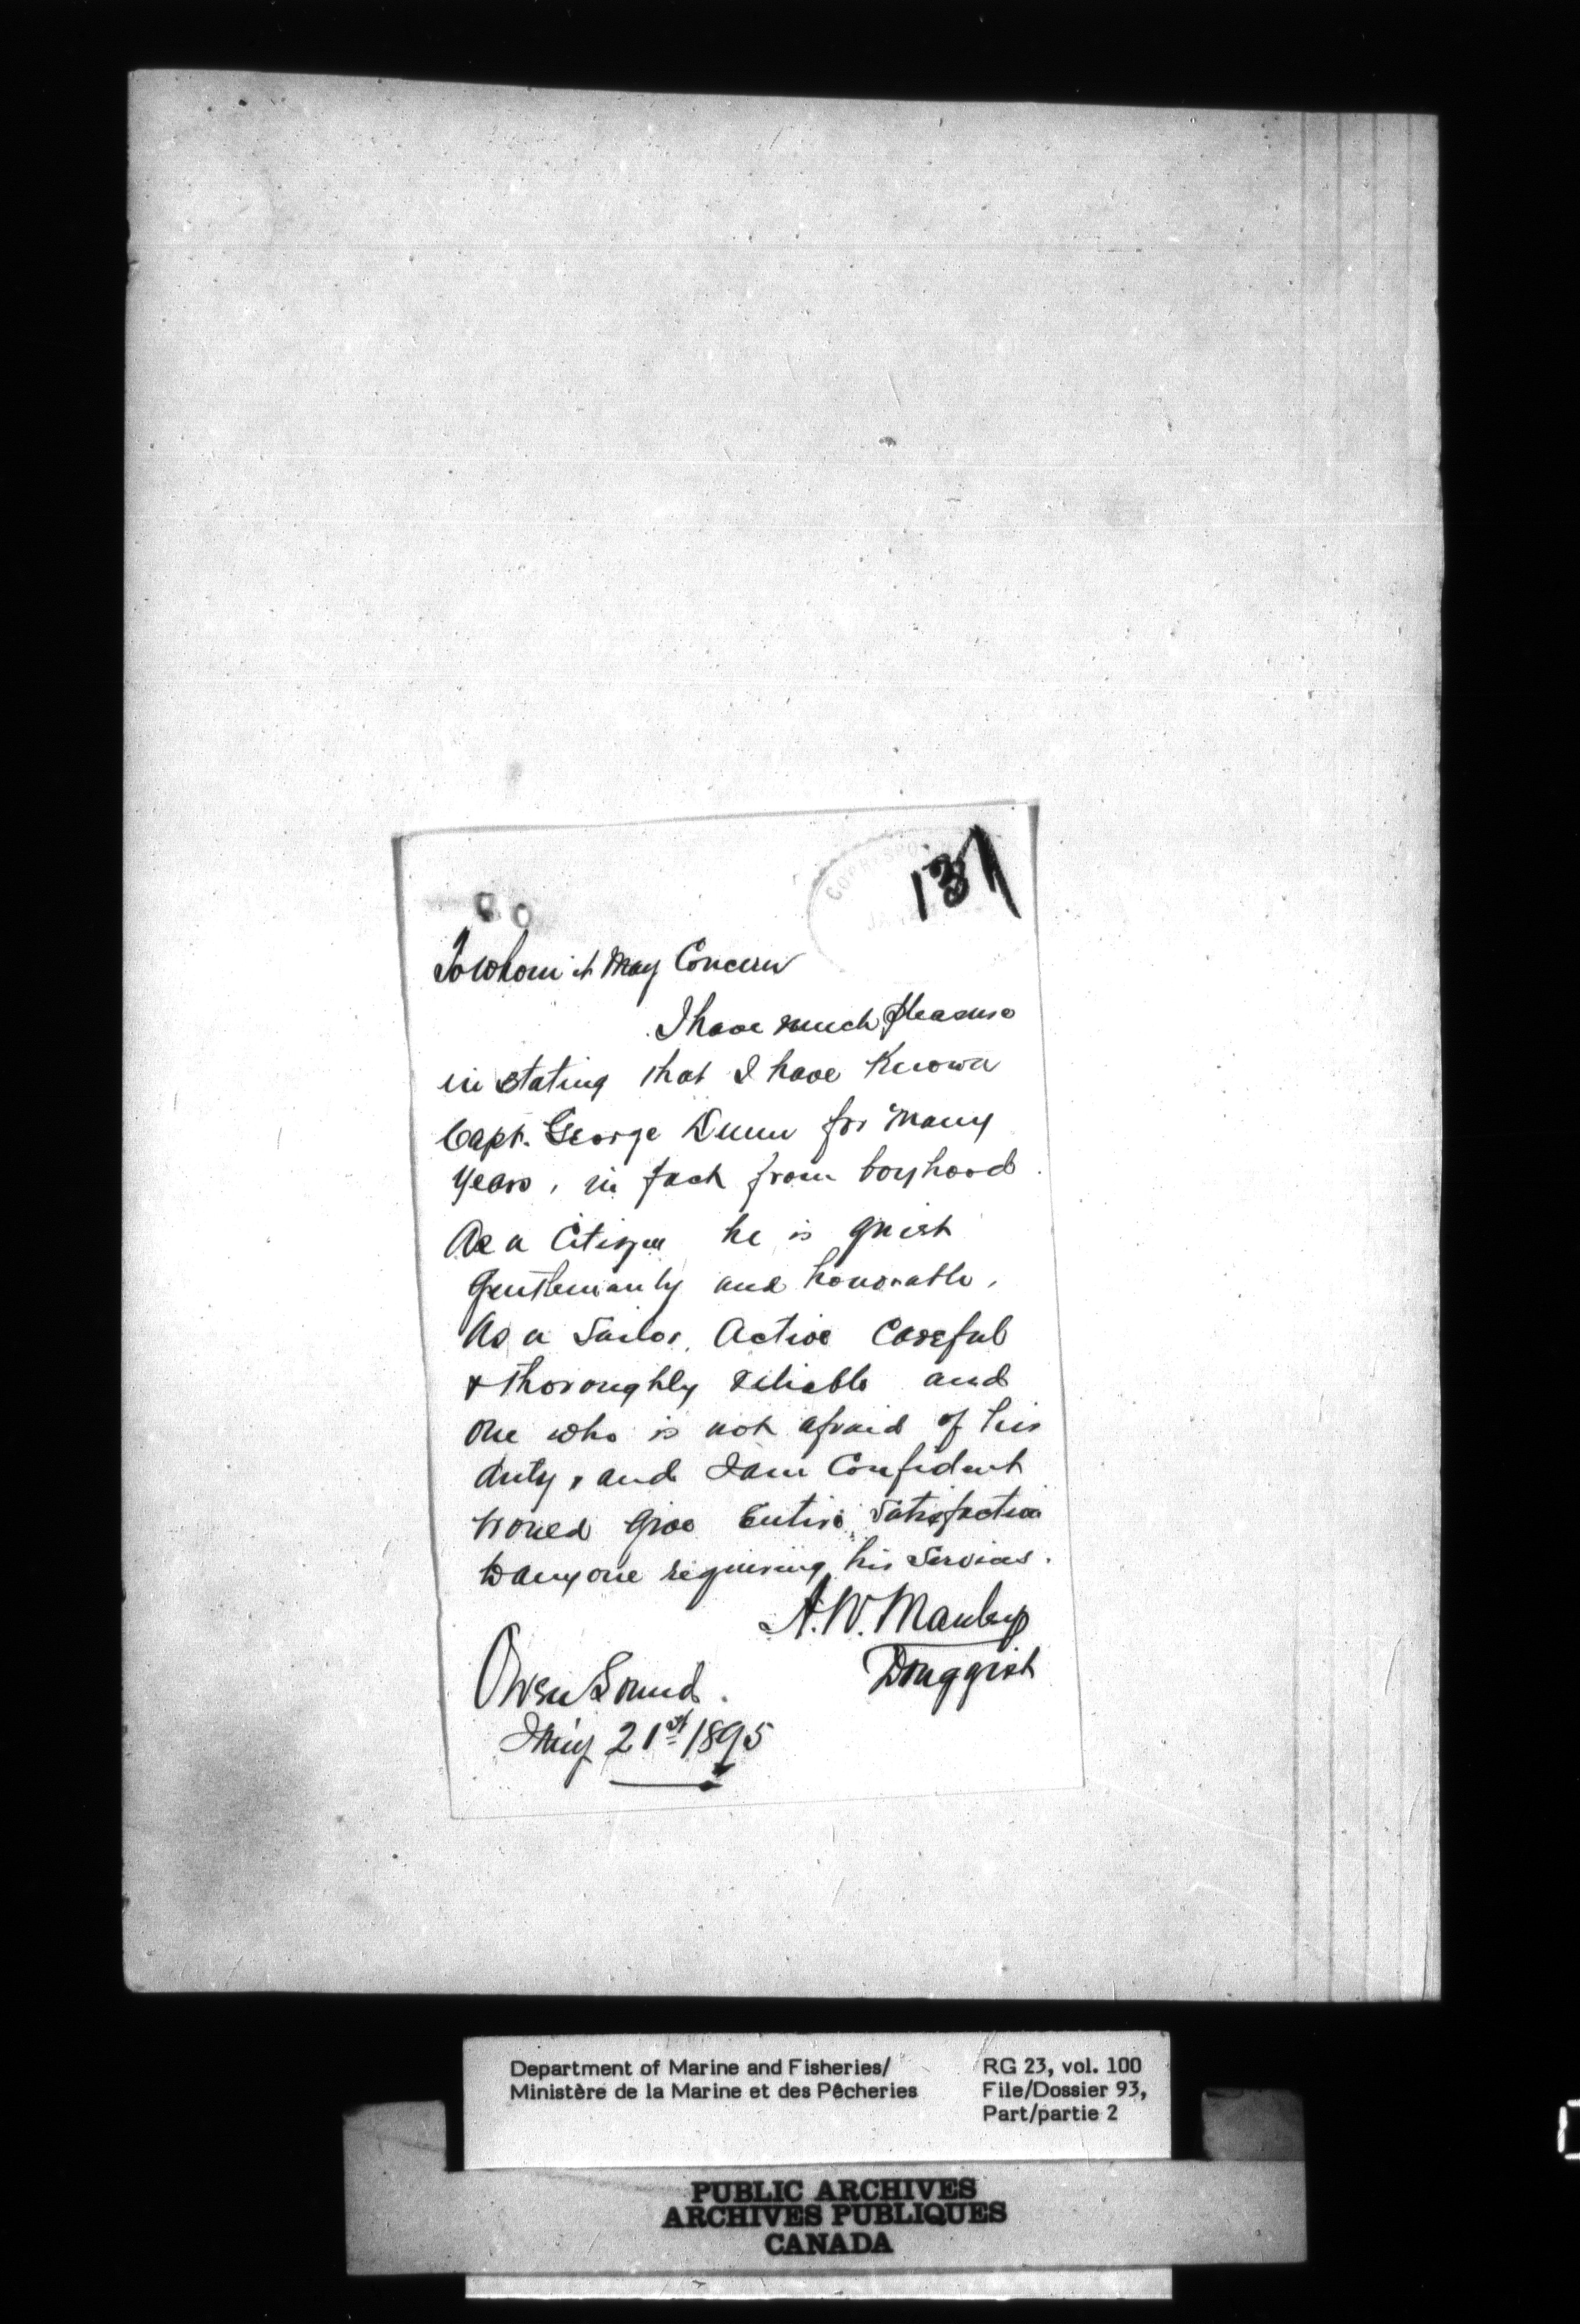 137
CORRESPO
JA
To Whom it May Concern
I have much pleasure
in stating that I have Known
Capt. George Dunn for many
years, in fact from boyhood.
As a Citizen he is quiet
Gentlemanly and honorable,
As a Sailor, Active Careful
& thoroughly reliable and
one who is not afraid of his
duty, and I am Confident
would give Entire Satisfaction
to anyone requiring his Services.
A. W. Manley
Druggist
Owen Sound.
May 21st 1895
Department of Marine and Fisheries/
Ministère de la Marine et des Pêcheries
RG 23, vol. 100
File/Dossier 93,
Part/partie 2
PUBLIC ARCHIVES
ARCHIVES PUBLIQUES
CANADA